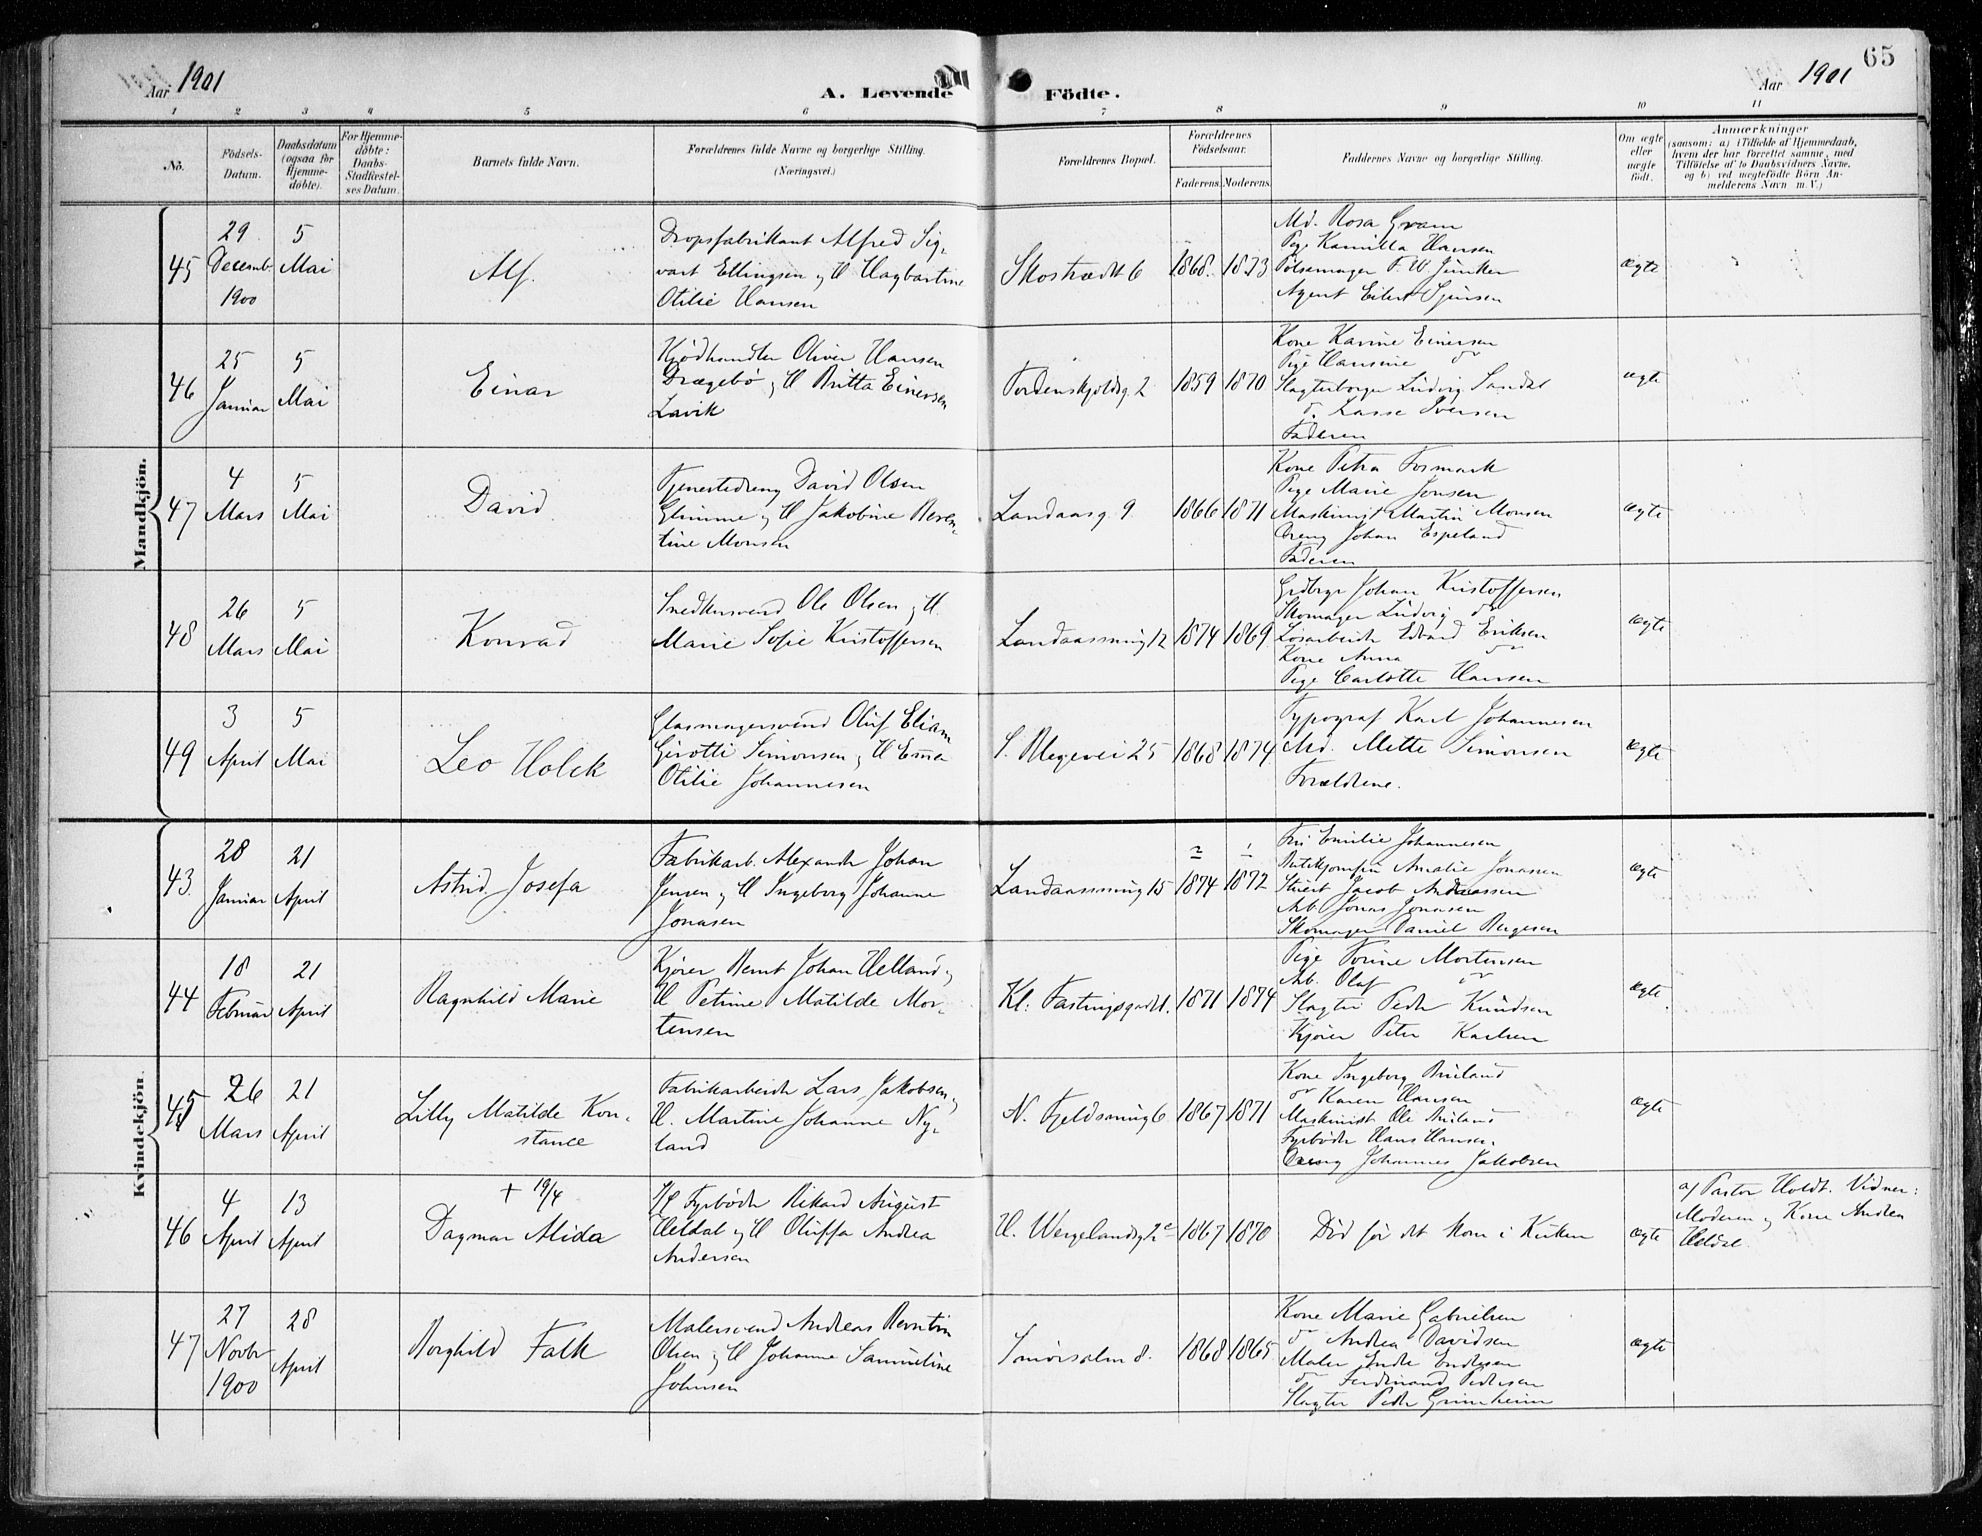 65
Aar 1901
A. Levende Födte.
Aar 1901
1 2 3 4 5 6 7 8 9 10 11
No.
Födsels-
Datum.
Daabsdatum
(ogsaa for
Hjemme-
döbte).
For Hjemme-
döbte:
Daabs-
Stadfæstel-
ses Datum.
Barnets fulde Navn.
Forældrenes fulde Navne og borgerlige Stilling.
(Næringsvei.)
Forældrenes Bopæl.
Forældrenes
Födselsaar.
Faderens. Moderens.
Faddernes Navne og borgerlige Stilling.
Om ægte
eller
uægte
födt.
Anmærkninger
(saasom: a) i Tilfælde af Hjemmedaab,
hvem der har forrettet samme, med
Tilföielse af to Daabsvidners Navne,
og b) ved uægtefödte Börn An-
melderens Navn m. V.)
Mandkjön.
45
29
Decemb.
1900
5
Mai
Alf.
Dropsfabrikant Alfred Sig-
vart Ellingsen og H Hagbartine
Otilie Hansen
Skostrædt 6
1868.
1873
Md. Rosa Gram
Pige Kamilla Hansen
Pölsemager F. W. Junker
Agent Eilert
ægte
46
25
Januar
5
Mai
Einar
Kjödhandler Oliver Hansen
Drægebö og H Britta Einersen
Lavik
Tordenskjoldsg. 2
1859
1870
Kone Karine Einersen
Pige Hansine do
Slagterborger Ludvig Sandal
do. Lasse Iversen
Faderen
ægte
47
4
Mars
5
Mai
David
Tjenestedreng David Olsen
Glimme og H Jakobine Beren-
tine Monsen
Landaasg. 9
1866
1871
Kone Petra Fosmark
Pige Marie Jonsen
Maskinist Martin Monsen
Dreng Johan Espeland
Faderen
ægte
48
26
Mars
5
Mai
Konrad
Snedkersvend Ole Olsen og H.
Marie Sofie Kristoffersen
Landaassmug 12
1874
1869
Johan Kristoffersen
Skomager Ludvig do
Lösarbeider Edvard Eriksen
Kone Anna do
Pige Carlotte Hansen
ægte
49
3
April
5
Mai
Leo Holck
Glasmagersvend Oluf Eliam
Girotti Simonsen og H Emma
Otilie Johannesen
S. Blegevei 25
1868
1874
Typograf Karl Johannesen
Md. Mette Simonsen
Forældrene.
ægte
Kvindekjön.
43.
28
Januar
21
April
Astrid Josefa
Fabrikarb. Alexander Johan
Jensen og H Ingeborg Johanne
Jonasen
Landaassmug 15
2
1874
1
1872
Fru Emilie Johannesen
Butikjomfru Amalie Jonassen
Stuert Jacob Andreassen
Arb. Jonas Jonasen
Skomager Daniel Bergesen
ægte
44
18
Februar
21
April
Ragnhild Marie
Kjörer Bernt Johan Helland og
H Petrine Matilde Mor-
tensen
Kl. Fastingsgaard 1.
1871
1874
Pige Torine Mortensen
Arb. Olaf do
Slagter Peder Knudsen
Kjörer Peter Karlsen
ægte
45
26
Mars
21
April
Lilly Matilde Kon-
stance
Fabrikarbeider Lars Jakobsen og
H. Martine Johanne Ny-
land
N. Fjeldsmug 6
1867
1871
Kone Ingeborg Bruland
do Karen Hansen
Maskinist Ole Bruland
Fyrböder Hans Hansen.
Dreng Johannes Jakobsen
ægte
46
4
April
13
April
+ 19/4
Dagmar Alida
Fyrböder Rikard August
Heldal og H Oluffa Andrea
Andersen
H. Wergelandsg. 2c
1867
1870
Död för det kom i Kirken
ægte
a) Pastor Holdt. Vidner:
Moderen og Kone Andrea
Heldal.
47
27
Novbr
1900
28
April
Borghild Falk
Malersvend Andreas Berntin
Olsen og H Johanne Samueline
Johnsen
Smörsalm. 8.
1868
1865
Kone Marie Gabrielsen
do Andrea Davidsen
Maler Endre Endresen
do Ferdinand Pedersen
Slagter Peder Grimheim
ægte